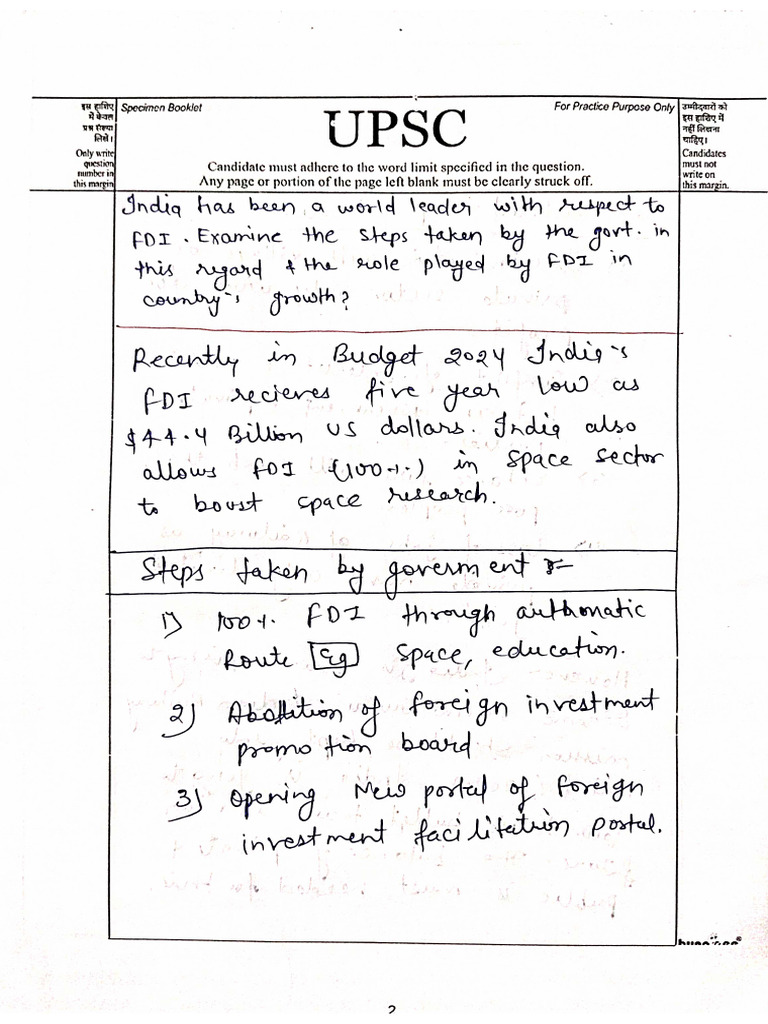 इस हाशिए
में केवल
प्रश्न संख्या
लिखें।
Only write
question
number in
this margin
Specimen Booklet
For Practice Purpose Only
UPSC
Candidate must adhere to the word limit specified in the question.
Any page or portion of the page left blank must be clearly struck off.
उम्मीदवारों को
इस हाशिए में
नहीं लिखना
चाहिए।
Candidates
must not
write on
this margin.
India has been a world leader with respect to
FDI. Examine the steps taken by the govt. in
this regard & the role played by FDI in
country's growth?
Recently in Budget 2024 India's
FDI recieves five year low as
$44.4 Billion US dollars. India also
allows FDI (100%) in space sector
to boust space research.
Steps taken by goverment :-
1) 100% FDI through authomatic
Route Eg Space, education.
2) Abolition of foreign investment
promotion board
3) Opening New portal of foreign
investment facilitation portal.
2